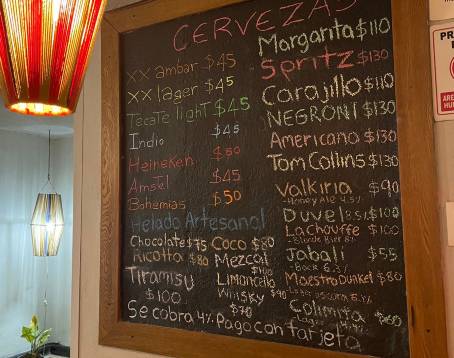 CERVEZAS
XX ambar $45
XX lager $45
Tecate light $45
Indio $45
Heineken $50
Amstel $45
Bohemias $50
Helado Artesanal
Chocolate $75 Coco $80
Ricotta $80 Mezcal $100
Tiramisu $100
Limoncello
Whisky $90
$70
Margarita $110
Spritz $130
Carajillo $110
NEGRONI $130
Americano $130
Tom Collins $130
Valkiria $90
Honey Ale 4.5%
Duvel 8.5% $100
Lachouffe $100
Blonde Bier 8%
Jabali $55
Bock 6.3%
Maestro Dunkel $80
Colimita $60
Lager
Se cobra 4% Pago con tarjeta